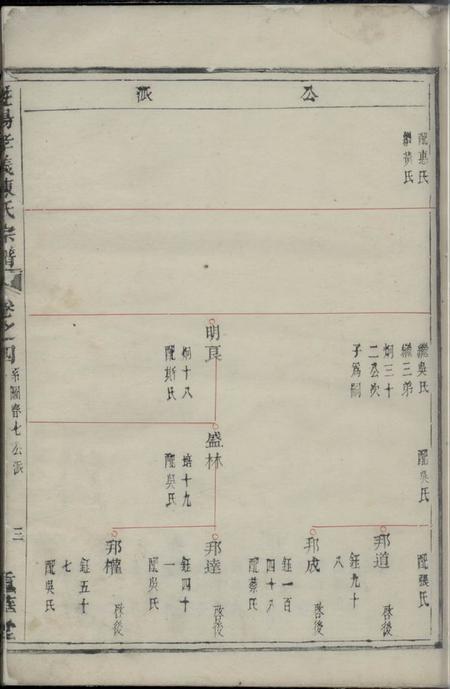 公派
配惠氏
繼黃氏
繼吳氏
繼三弟
炯三十
二公次
子爲嗣
明良
炯十八
配斯氏
配吳氏
盛林
培十九
配吳氏
配張氏
邦道
啓後
鈺九十
八
邦成
啓後
鈺一百
四十八
配蔡氏
邦達
啓後
鈺四十
一
配吳氏
邦權
啓後
鈺五十
七
配吳氏
孝義陳氏宗譜
卷之四
系圖春七公派
三